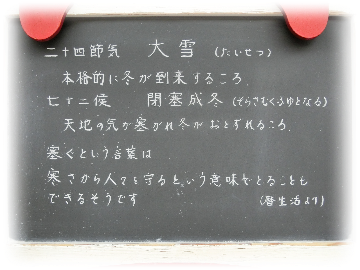 二十四節気　大雪（たいせつ）
本格的に冬が到来するころ.
七十二侯　閉塞成冬（そらさむくふゆとなる）
天地の気が塞がれ冬がおとずれるころ.
塞ぐという言葉は
寒さから人々を守るという意味でとることも
できるそうです　（暦生活より）